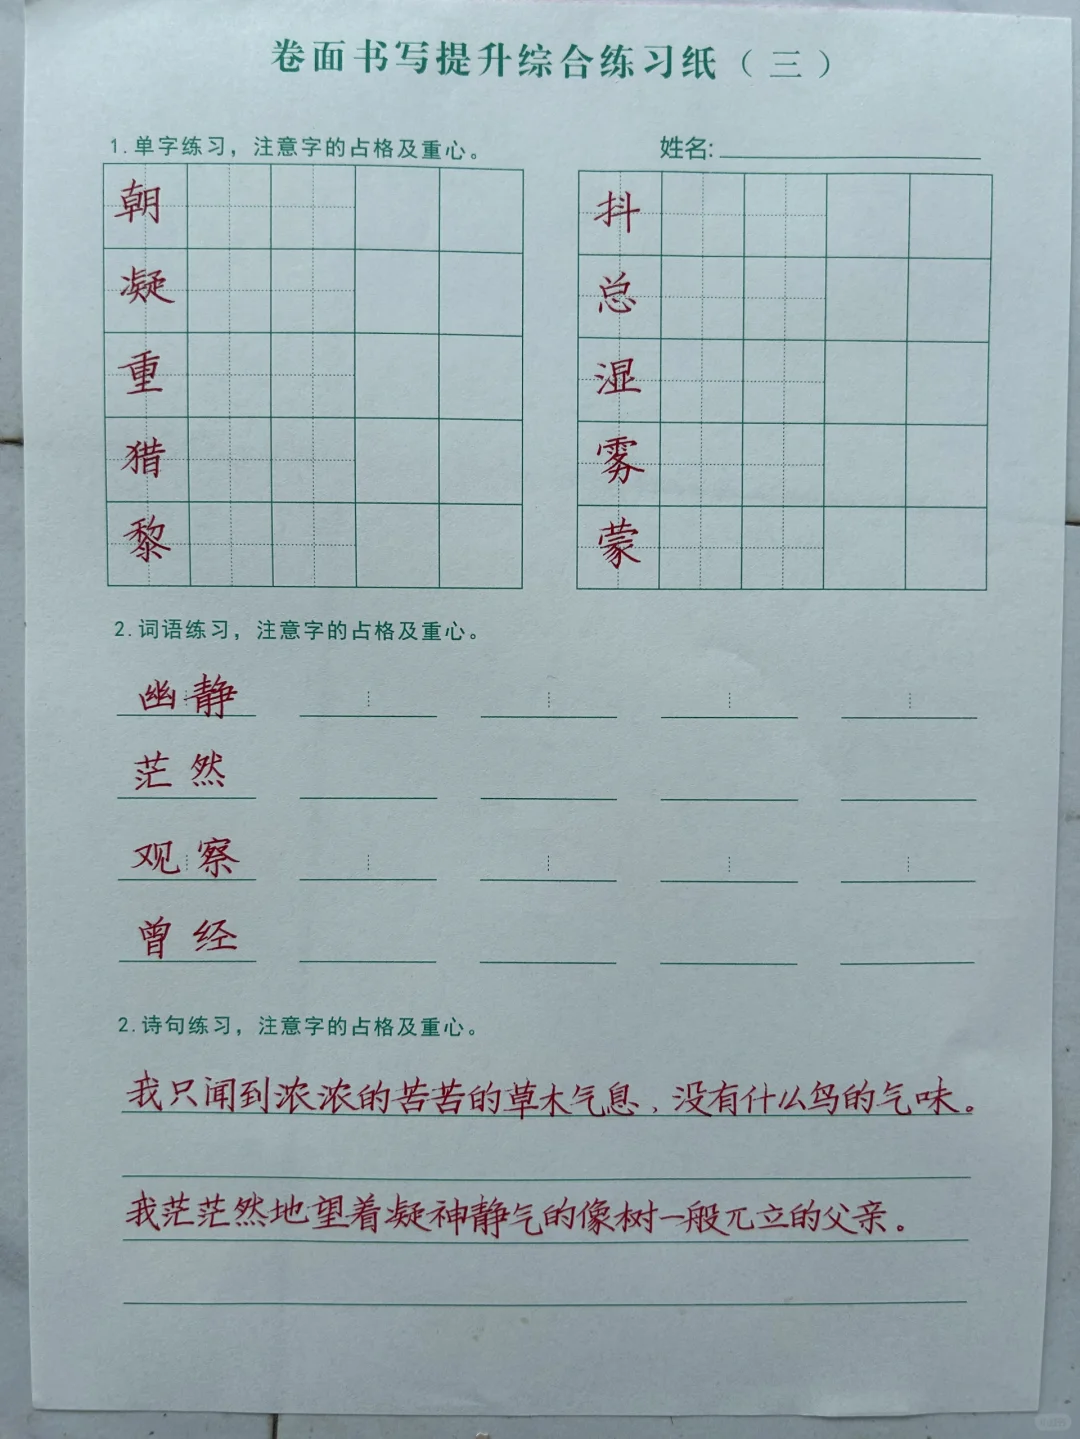 卷面书写提升综合练习纸（三）
1.单字练习，注意字的占格及重心。
姓名:
朝
凝
重
猎
黎
抖
总
湿
雾
蒙
2.词语练习，注意字的占格及重心。
幽静
茫然
观察
曾经
2.诗句练习，注意字的占格及重心。
我只闻到浓浓的苦苦的草木气息、没有什么鸟的气味。
我茫茫然地望着凝神静气的像树一般兀立的父亲。